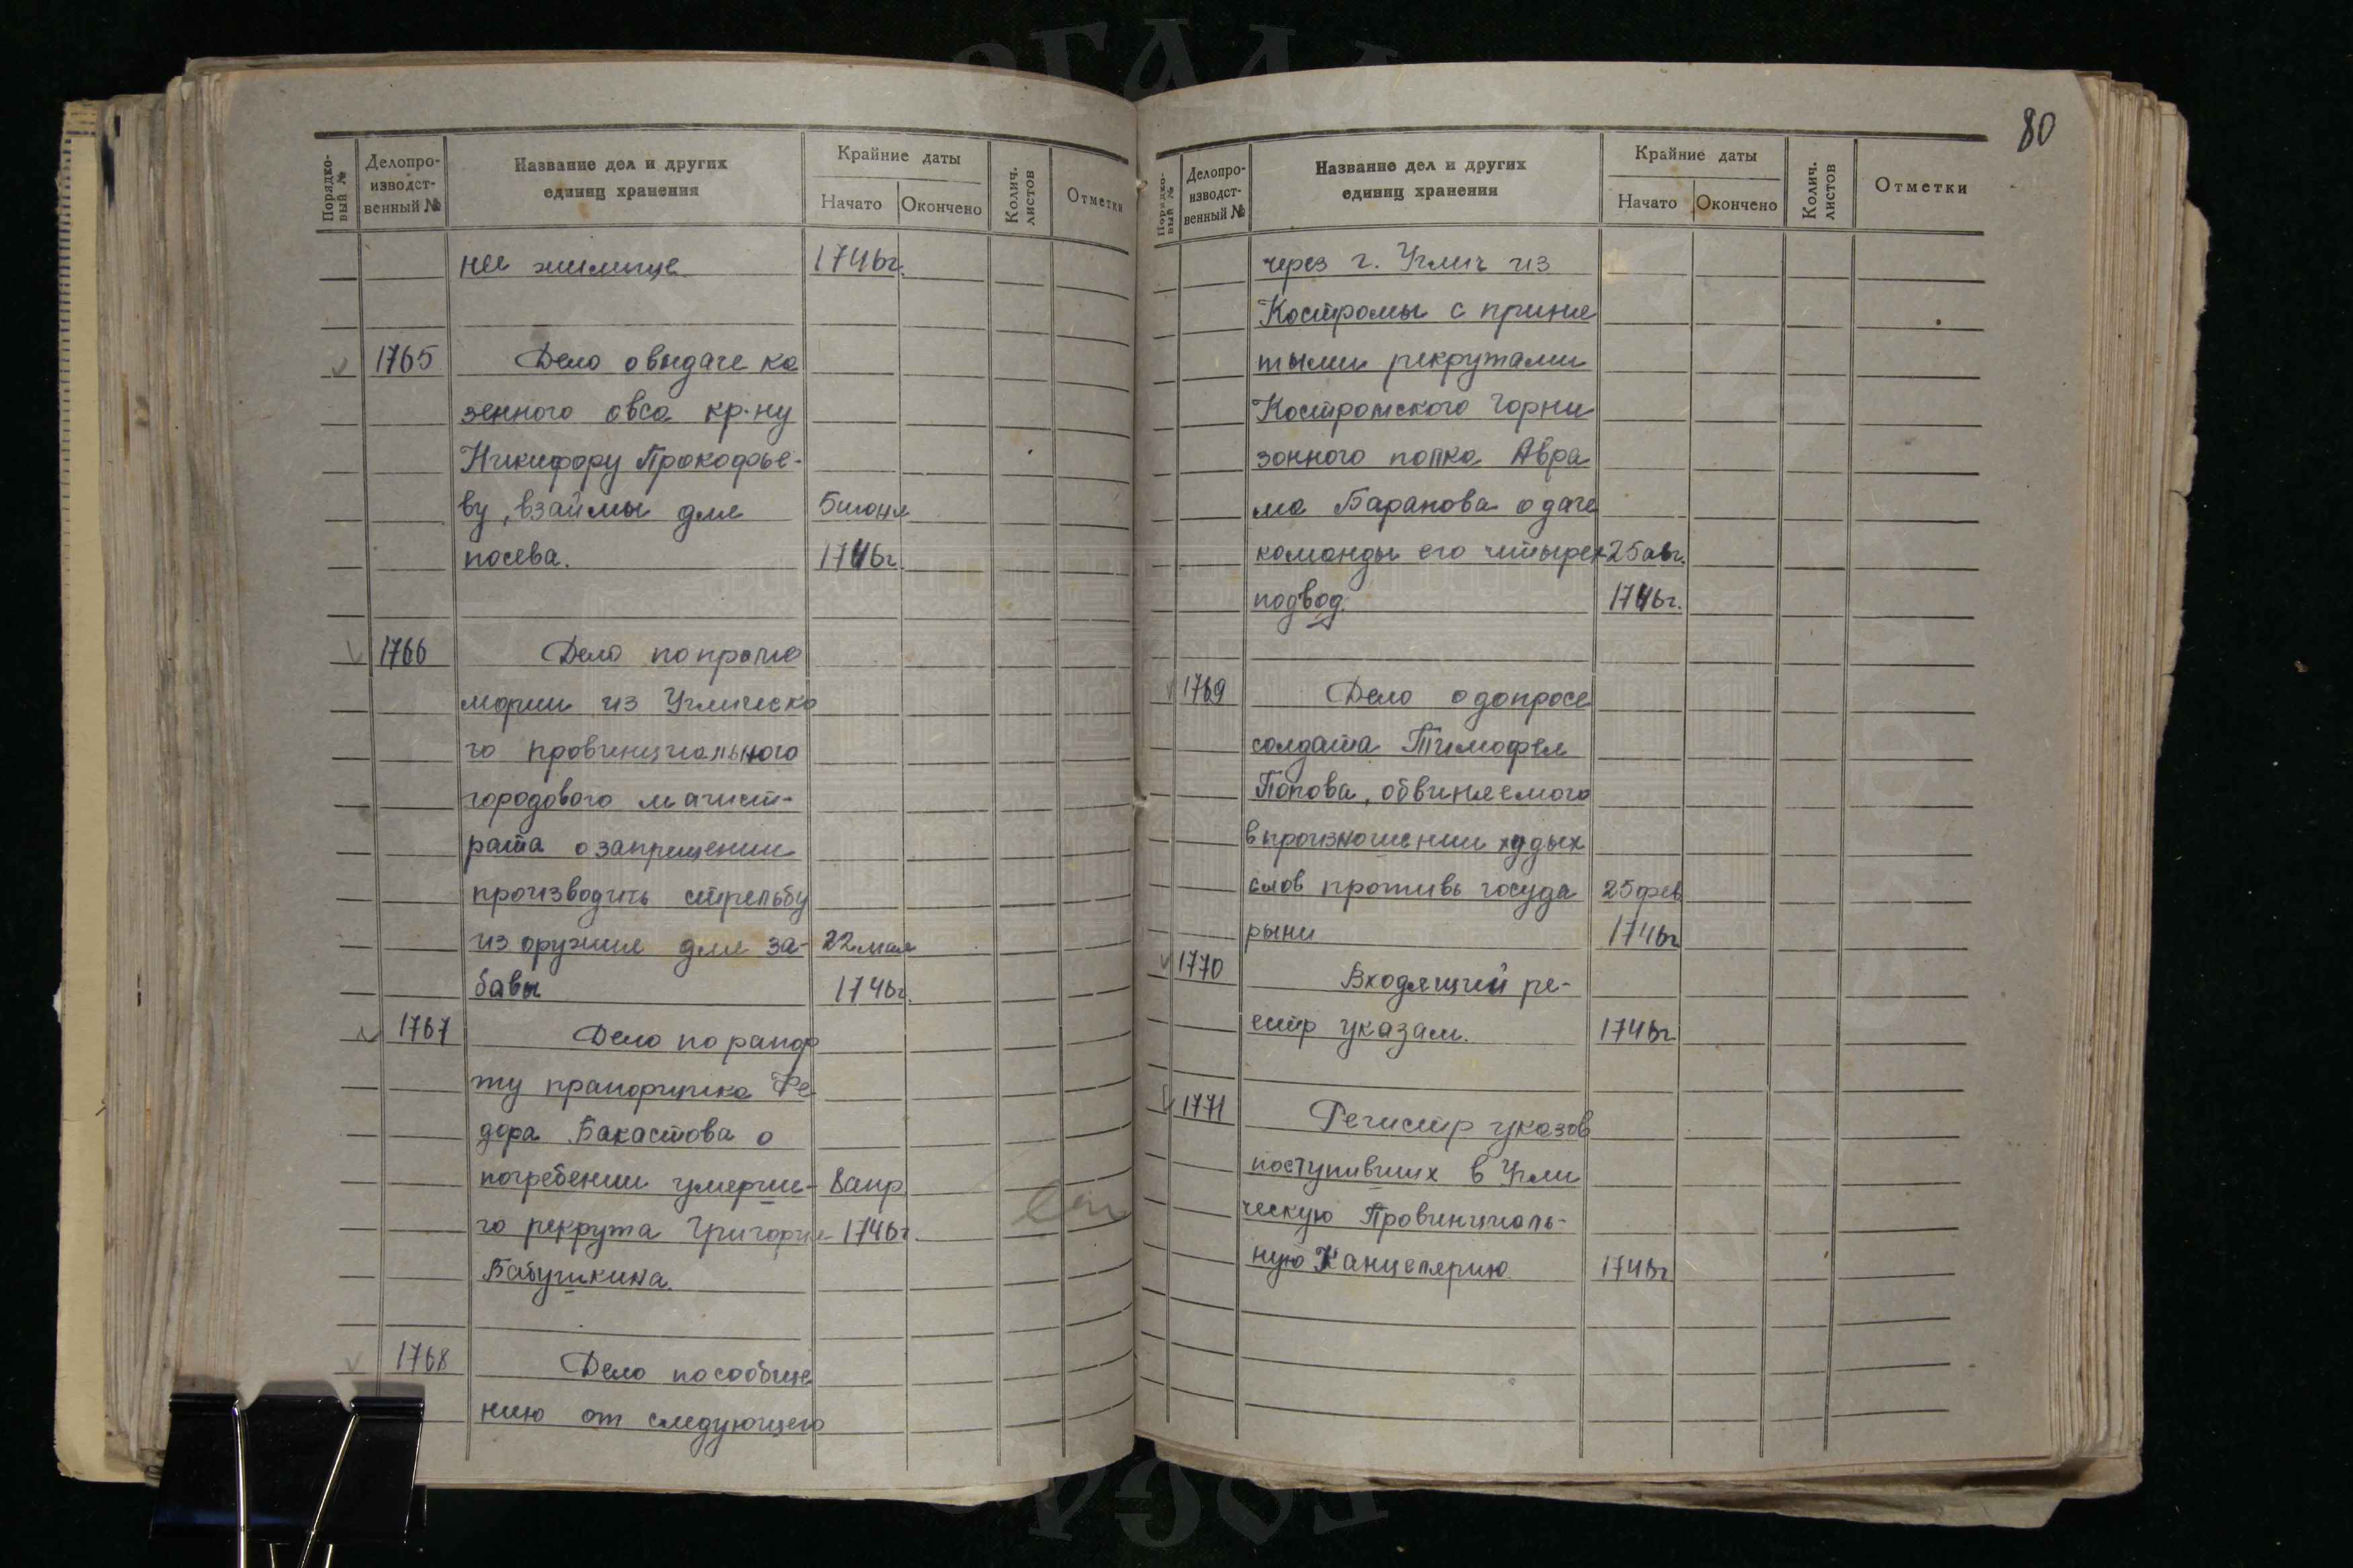 80
Порядко-
вый №
Делопро-
изводст-
венный №
Название дел и других
единиц хранения
Крайние даты
Начато
Окончено
Колич.
листов
Отметки
нее жилище 1746г.
1765 Дело о выдаче ка
зенного овса кр-ну
Никифору Прокофье-
ву, взаймы для 5 июня
посева. 1746г.
1766 Дело по промe
мории из Угличско
го провинциального
городового магист-
рата о запрещении
производить стрельбу
из оружия для за- 22 мая
бавы 1746г.
1767 Дело по рапор
ту прапорщика Фе
дора Бакастова о
погребении умерше- 8 апр
го рекрута Григория 1746г.
Бабушкина.
1768 Дело по сообще
нию от следующего
Порядко-
вый №
Делопро-
изводст-
венный №
Название дел и других
единиц хранения
Крайние даты
Начато
Окончено
Колич.
листов
Отметки
через г. Углич из
Костромы с приня
тыми рекрутами
Костромского горни
зонного полка Авра
ма Баранова о даче
команды его четырех 25 авг.
подвод. 1746г.
1769 Дело о допросе
солдата Тимофея
Попова, обвиняемого
в произношении худых
слов противь госуда 25 фев
рыни 1746г
1770 Входящий ре-
естр указам. 1746г
1771 Регистр указов
поступивших в Угли
ческую Провинциаль-
ную Канцелярию 1746г